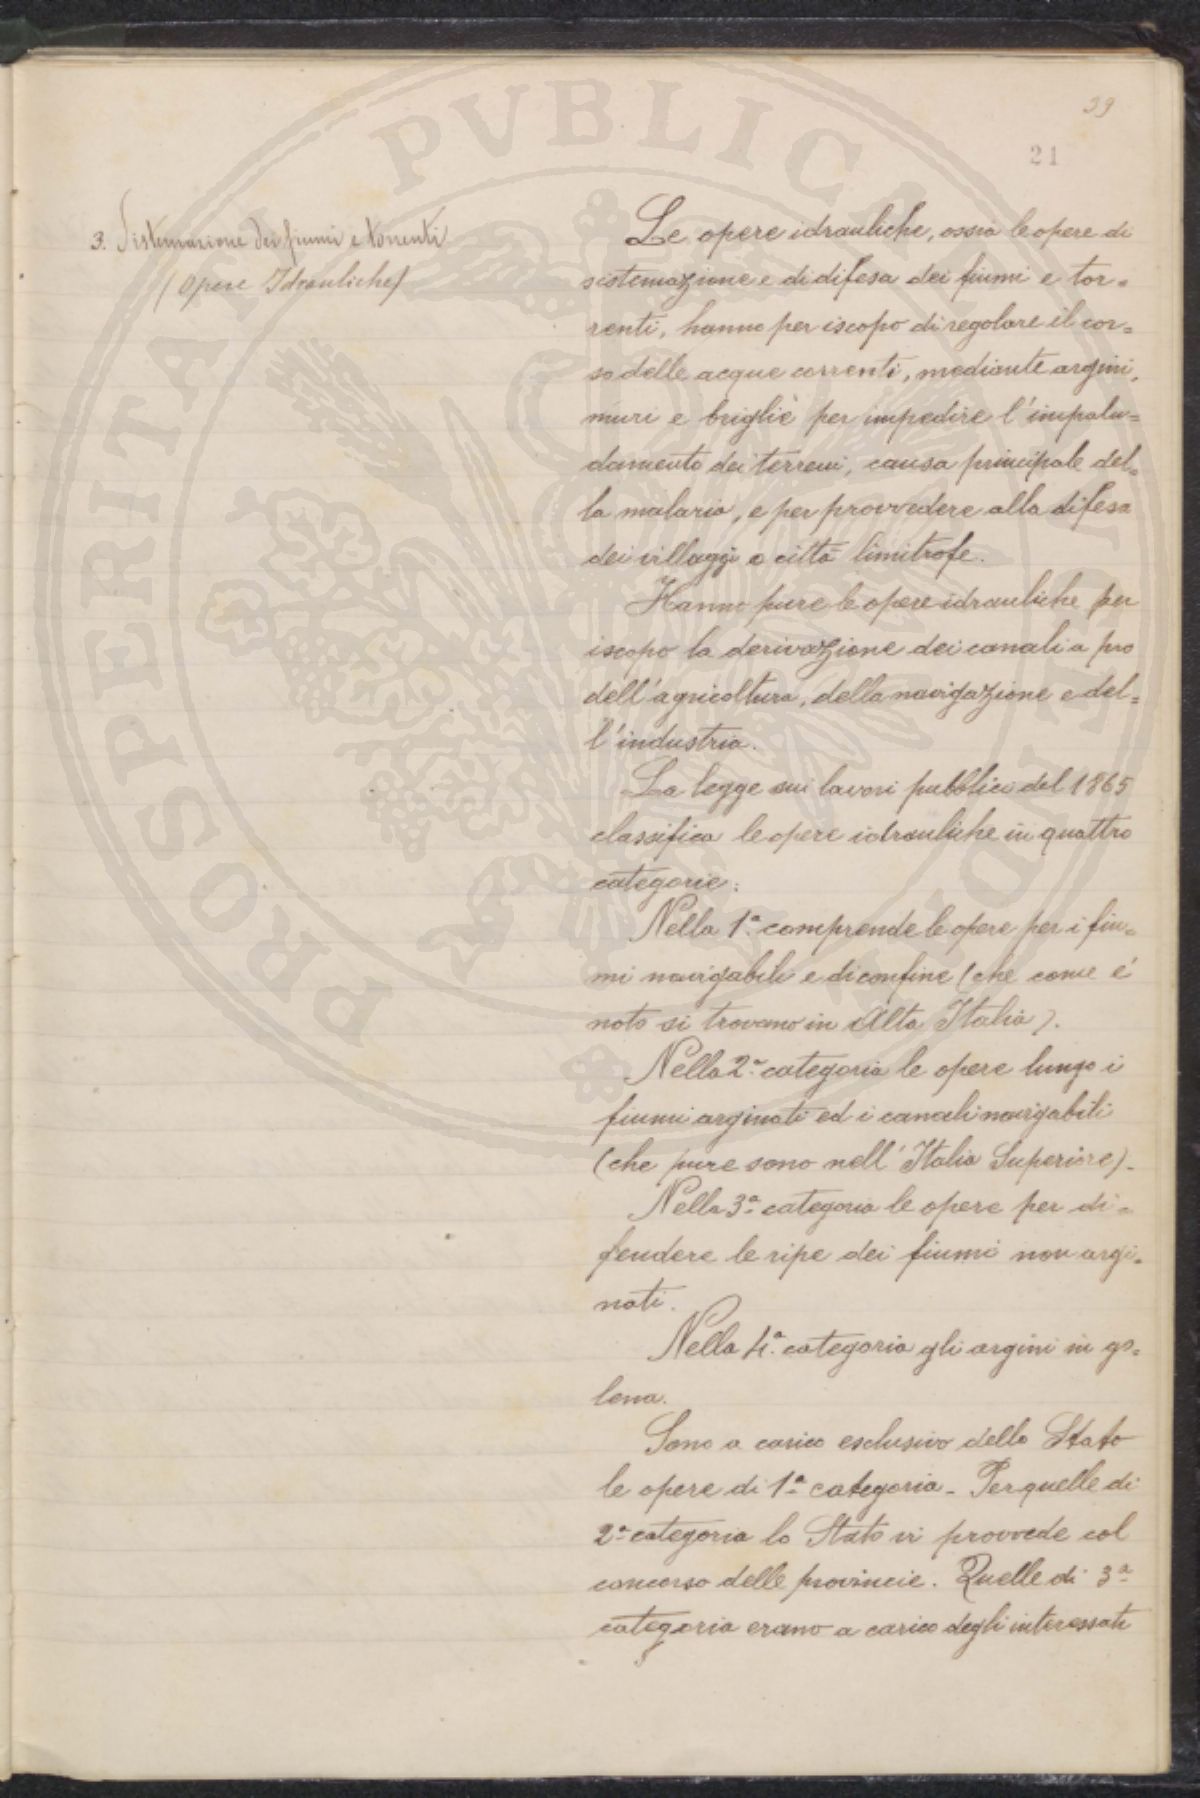 39
21
3. Sistemazione dei fiumi e torrenti
(Opere Idrauliche)
Le opere idrauliche, ossia le opere di
sistemazione e di difesa dei fiumi e tor=
renti, hanno per iscopo di regolare il cor=
so delle acque correnti, mediante argini,
muri e briglie per impedire l'impalu=
damento dei terreni, causa principale del=
la malaria, e per provvedere alla difesa
dei villaggi o città limitrofe.
Hanno pure le opere idrauliche per
iscopo la derivazione dei canali a pro
dell'agricoltura, della navigazione e del=
l'industria.
La legge sui lavori pubblici del 1865
classifica le opere idrauliche in quattro
categorie:
Nella 1ª comprende le opere per i fiu=
mi navigabili e di confine (che come é
noto si trovano in Alta Italia).
Nella 2ª categoria le opere lungo i
fiumi arginati ed i canali navigabili
(che pure sono nell'Italia Superiore).
Nella 3ª categoria le opere per di=
fendere le ripe dei fiumi non argi=
nati.
Nella 4ª categoria gli argini in go=
lena.
Sono a carico esclusivo dello Stato
le opere di 1ª categoria. Per quelle di
2ª categoria lo Stato vi provvede col
concorso delle provincie. Quelle di 3ª
categoria erano a carico degli interessati
PROSPERITATI PUBLICAE